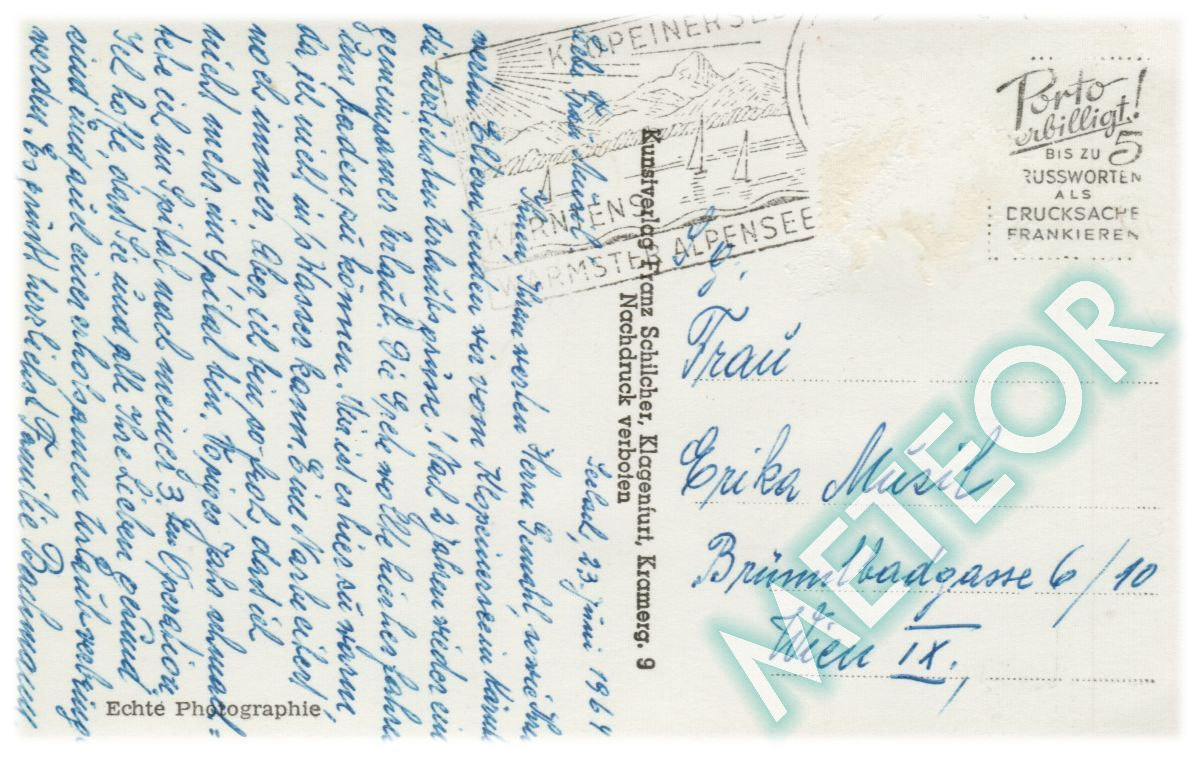 KLOPEINERSEE
KÄRNTENS
WÄRMSTER ALPENSEE
Porto
verbilligt!
BIS ZU 5
GRUSSWORTEN
ALS
DRUCKSACHE
FRANKIEREN
23. Juni 1964
Liebe Frau Musil!
Ihnen, Ihrem werten Herrn Gemahl sowie Ihren
werten Eltern senden wir vom Klopeinersee in Kärnten
die herzlichsten Urlaubsgrüße. Nach 2 Jahren wieder ein
gemeinsamer Urlaub. Die Gretl wollte hierher fahren
zum Baden zu können. Mir ist es hier zu warm,
da ich nicht ins Wasser kann. Eine Narbe eitert
noch immer. Aber ich bin so froh, dass ich
nicht mehr im Spital bin. Voriges Jahr schmach=
tete ich im Spital nach meiner 3. ten Operation.
Ich hoffe, dass Sie und alle Ihre Lieben gesund
sind und auch einen erholsamen Urlaub verbringen
werden. Es grüßt herzlichst Familie
Kunstverlag Franz Schilcher, Klagenfurt, Kramerg. 9
Nachdruck verboten
Echte Photographie
Frau
Erika Musil
Brünnlbadgasse 6/10
Wien IX.
METEOR